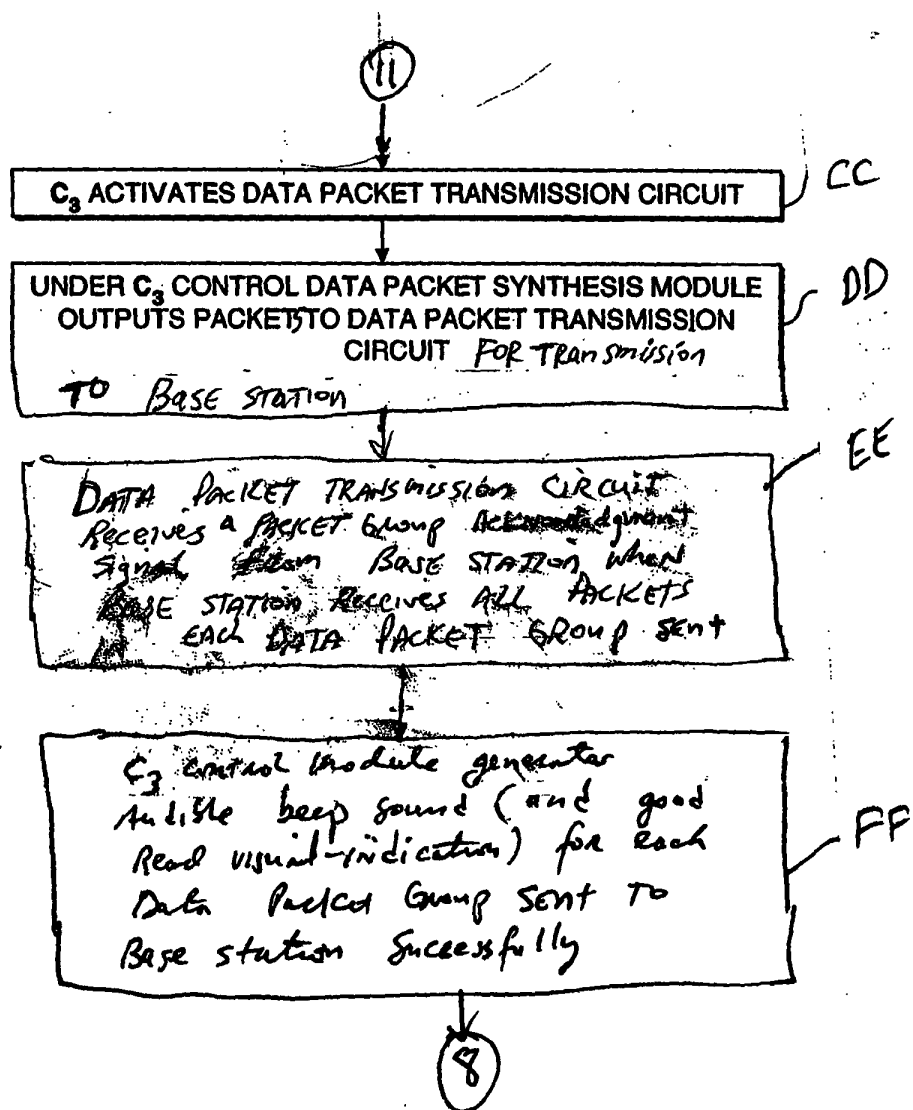 11
C₃ ACTIVATES DATA PACKET TRANSMISSION CIRCUIT
CC
UNDER C₃ CONTROL DATA PACKET SYNTHESIS MODULE
DD
OUTPUTS PACKETS TO DATA PACKET TRANSMISSION
CIRCUIT FOR TRANSMISSION
TO BASE STATION
EE
DATA PACKET TRANSMISSION CIRCUIT
Receives a PACKET Group Acknowledgment
Signal from BASE STATION when
BASE STATION Receives ALL PACKETS
EACH DATA PACKET GROUP Sent
C₃ control module generates
Audible beep sound (and good
Read visual-indication) for each
FF
Data Packet Group SENT TO
Base station Successfully
8